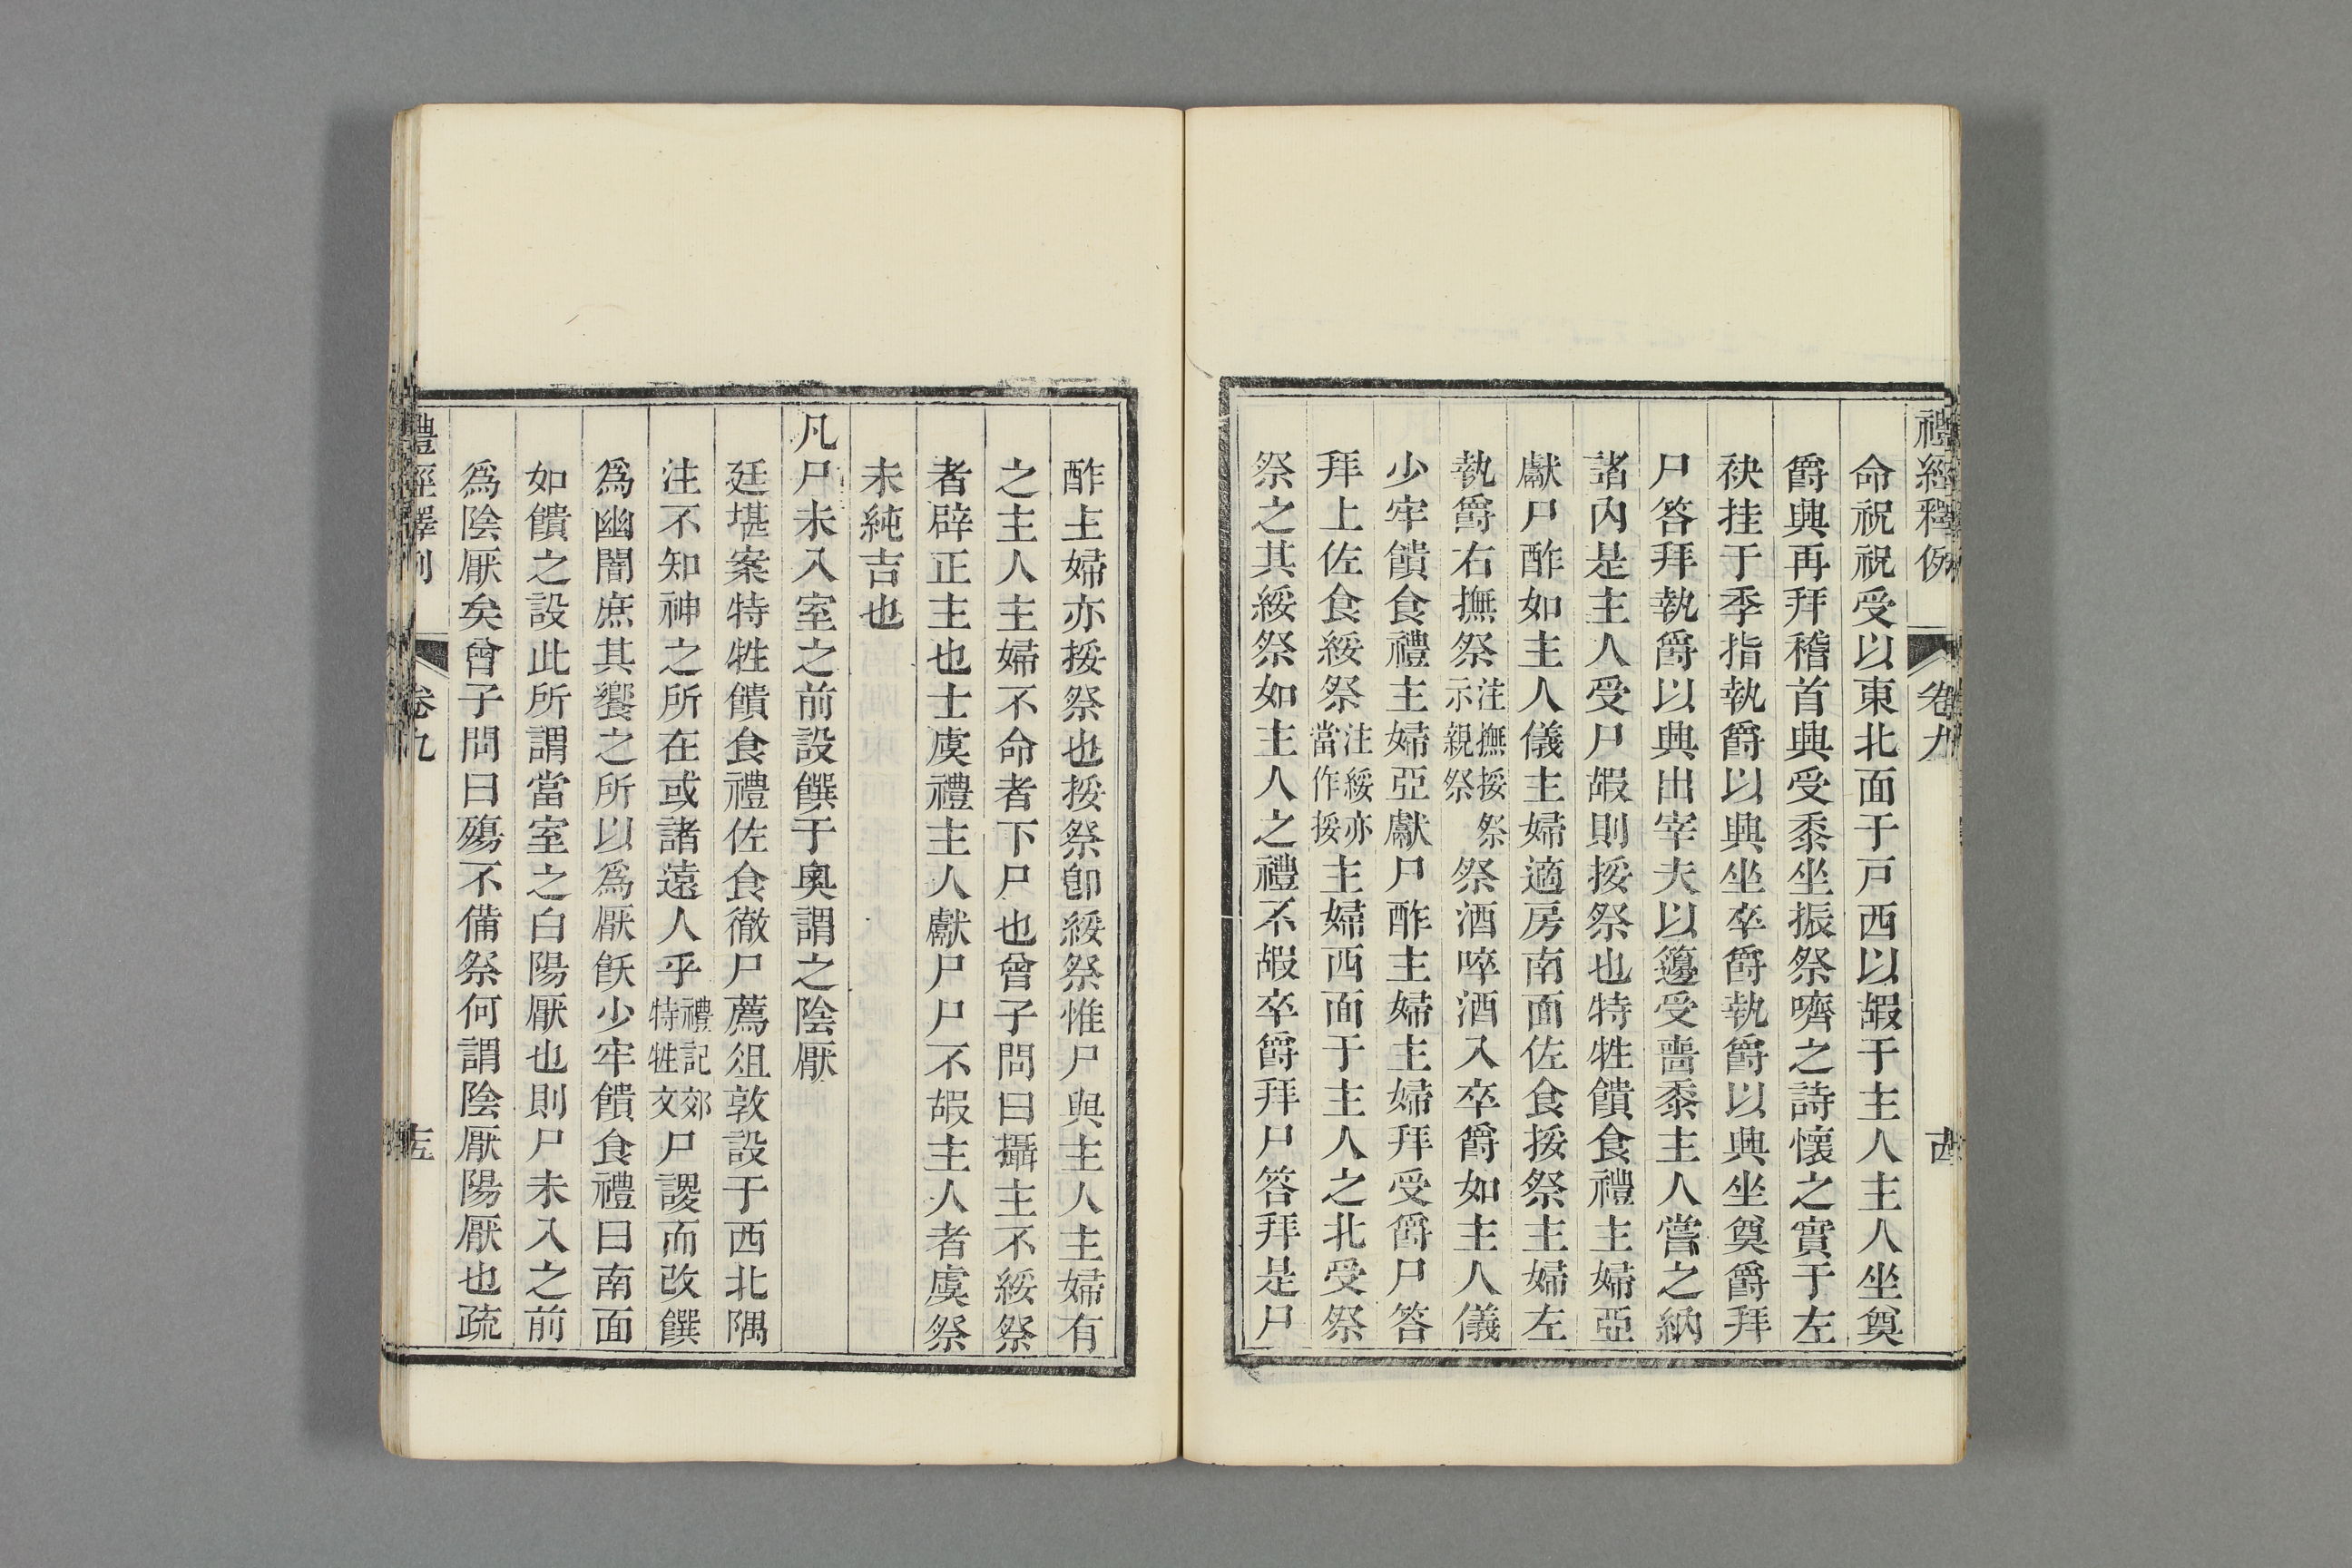 禮經釋例 卷九 古
命祝祝受以東北面于戸西以嘏于主人主人坐奠
爵興再拜稽首興受黍坐振祭嚌之詩懷之實于左
袂挂于季指執爵以興坐卒爵執爵以興坐奠爵拜
尸答拜執爵以興出宰夫以籩受嗇黍主人嘗之納
諸內是主人受尸嘏則挼祭也特牲饋食禮主婦亞
獻尸酢如主人儀主婦適房南面佐食挼祭主婦左
執爵右撫祭注撫挼祭示親祭祭酒啐酒入卒爵如主人儀
少牢饋食禮主婦亞獻尸酢主婦主婦拜受爵尸答
拜上佐食綏祭注綏亦當作挼主婦西面于主人之北受祭
祭之其綏祭如主人之禮不嘏卒爵拜尸答拜是尸
酢主婦亦挼祭也挼祭卽綏祭惟尸與主人主婦有
之主人主婦不命者下尸也曾子問曰攝主不綏祭
者辟正主也士虞禮主人獻尸尸不嘏主人者虞祭
未純吉也
凡尸未入室之前設饌于奧謂之陰厭
廷堪案特牲饋食禮佐食徹尸薦俎敦設于西北隅
注不知神之所在或諸遠人乎禮記郊特牲文尸謖而改饌
爲幽闇庶其饗之所以爲厭飫少牢饋食禮曰南面
如饋之設此所謂當室之白陽厭也則尸未入之前
爲陰厭矣曾子問曰殤不備祭何謂陰厭陽厭也疏
禮經釋例 卷九